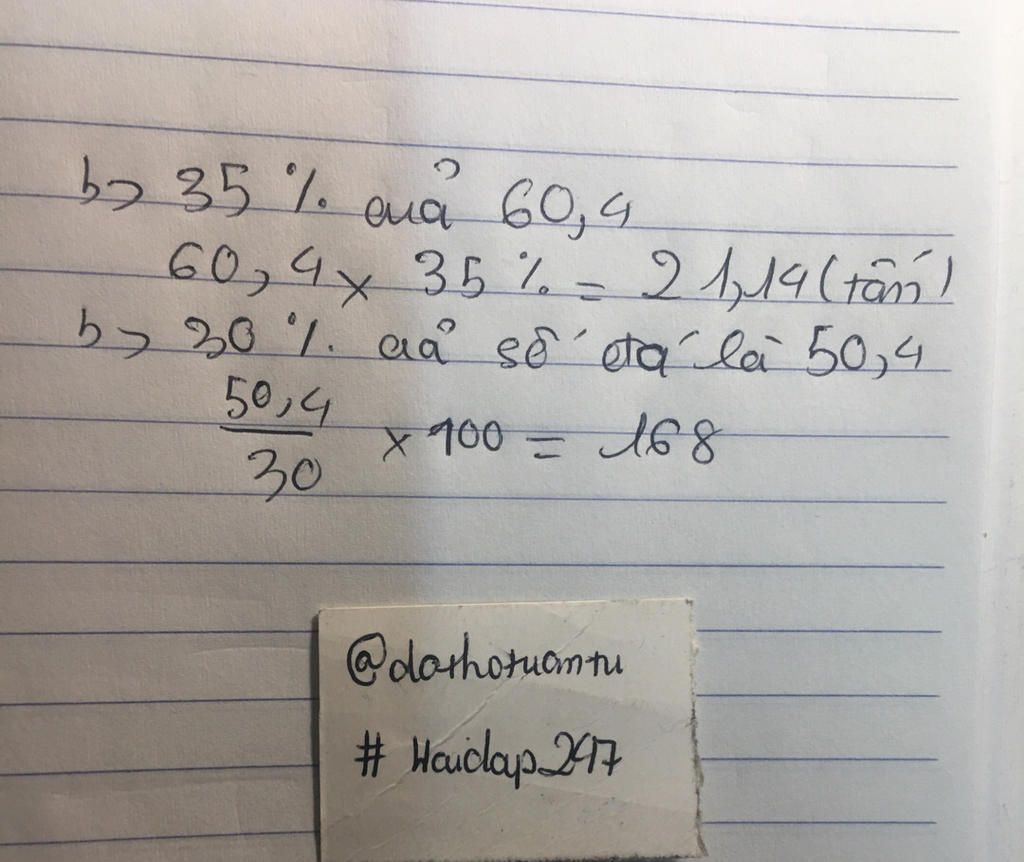 b> 35 % của 60,4
60,4 x 35 % = 21,14 (tấn)
b> 30 % của số đó là 50,4
50,4
30
x 100 = 168
@dothotuantu
# Hoidap247